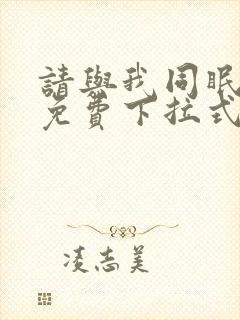 請與我同眠
免費下拉式
凌志美